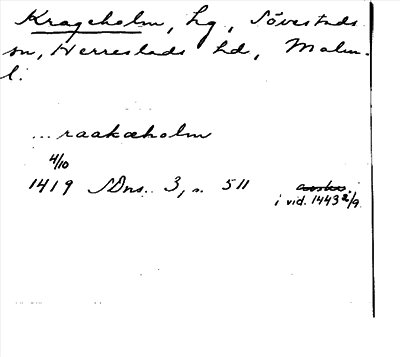 Krageholm, hg, Sövestads
sn, Herrestads hd, Malm.
l.
... raakæholm
4/10
1419 SDns. 3, s. 511
avskr.
i vid. 1443 2/9